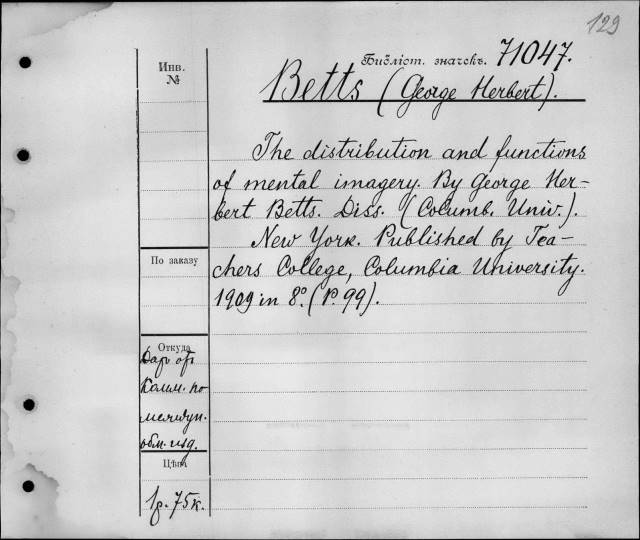 129
Библіот. значекъ. 71047.
Инв.
№
Betts (George Herbert).
The distribution and functions
of mental imagery. By George Her-
bert Betts. Diss. (Columb. Univ.).
New York. Published by Tea-
chers College, Columbia University.
1909 in 8º. (P. 99).
По заказу
Откуда
Даръ отъ
Комм. по
междун.
обм. изд.
Цѣна
1р. 75к.